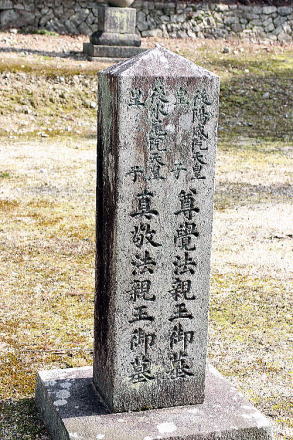 後陽成院天皇
皇子
尊覺法親王御墓
後水尾院天皇
皇子
真敬法親王御墓